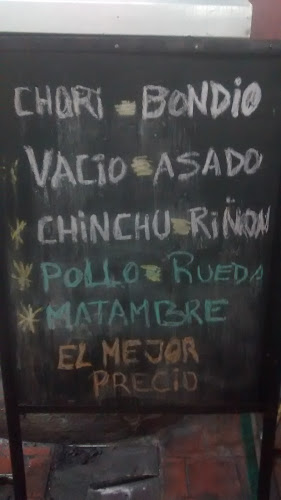 CHORi = BONDiO
VACiO = ASADO
* CHiNCHU = RiÑON
* POLLO = RUEDA
* MATAMBRE
EL MEJOR
PRECIO